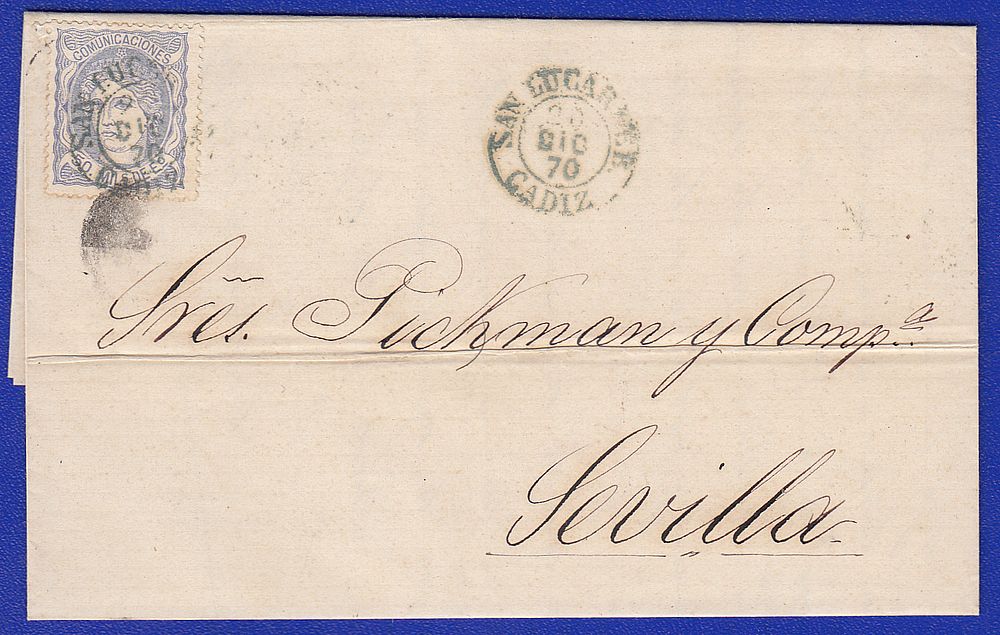 COMUNICACIONES
50 MILS DE E.
SAN LUCAR
DIC
70
CADIZ
Sres. Pickman y Comp.ª
Sevilla